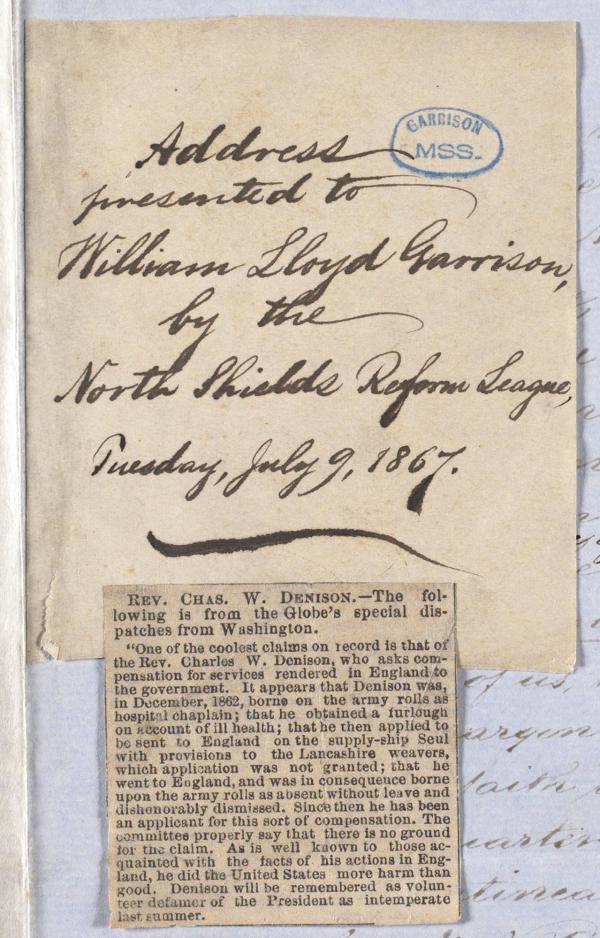 GARRISON
MSS.
Address
presented to
William Lloyd Garrison,
by the
North Shields Reform League,
Tuesday, July 9, 1867.
REV. CHAS. W. DENISON.—The fol-
lowing is from the Globe's special dis-
patches from Washington.
"One of the coolest claims on record is that of
the Rev. Charles W. Denison, who asks com-
pensation for services rendered in England to
the government. It appears that Denison was,
in December, 1862, borne on the army rolls as
hospital chaplain; that he obtained a furlough
on account of ill health; that he then applied to
be sent to England on the supply-ship Seul
with provisions to the Lancashire weavers,
which application was not granted; that he
went to England, and was in consequence borne
upon the army rolls as absent without leave and
dishonorably dismissed. Since then he has been
an applicant for this sort of compensation. The
committee properly say that there is no ground
for the claim. As is well known to those ac-
quainted with the facts of his actions in Eng-
land, he did the United States more harm than
good. Denison will be remembered as volun-
teer defamer of the President as intemperate
last summer.
of us,
faith